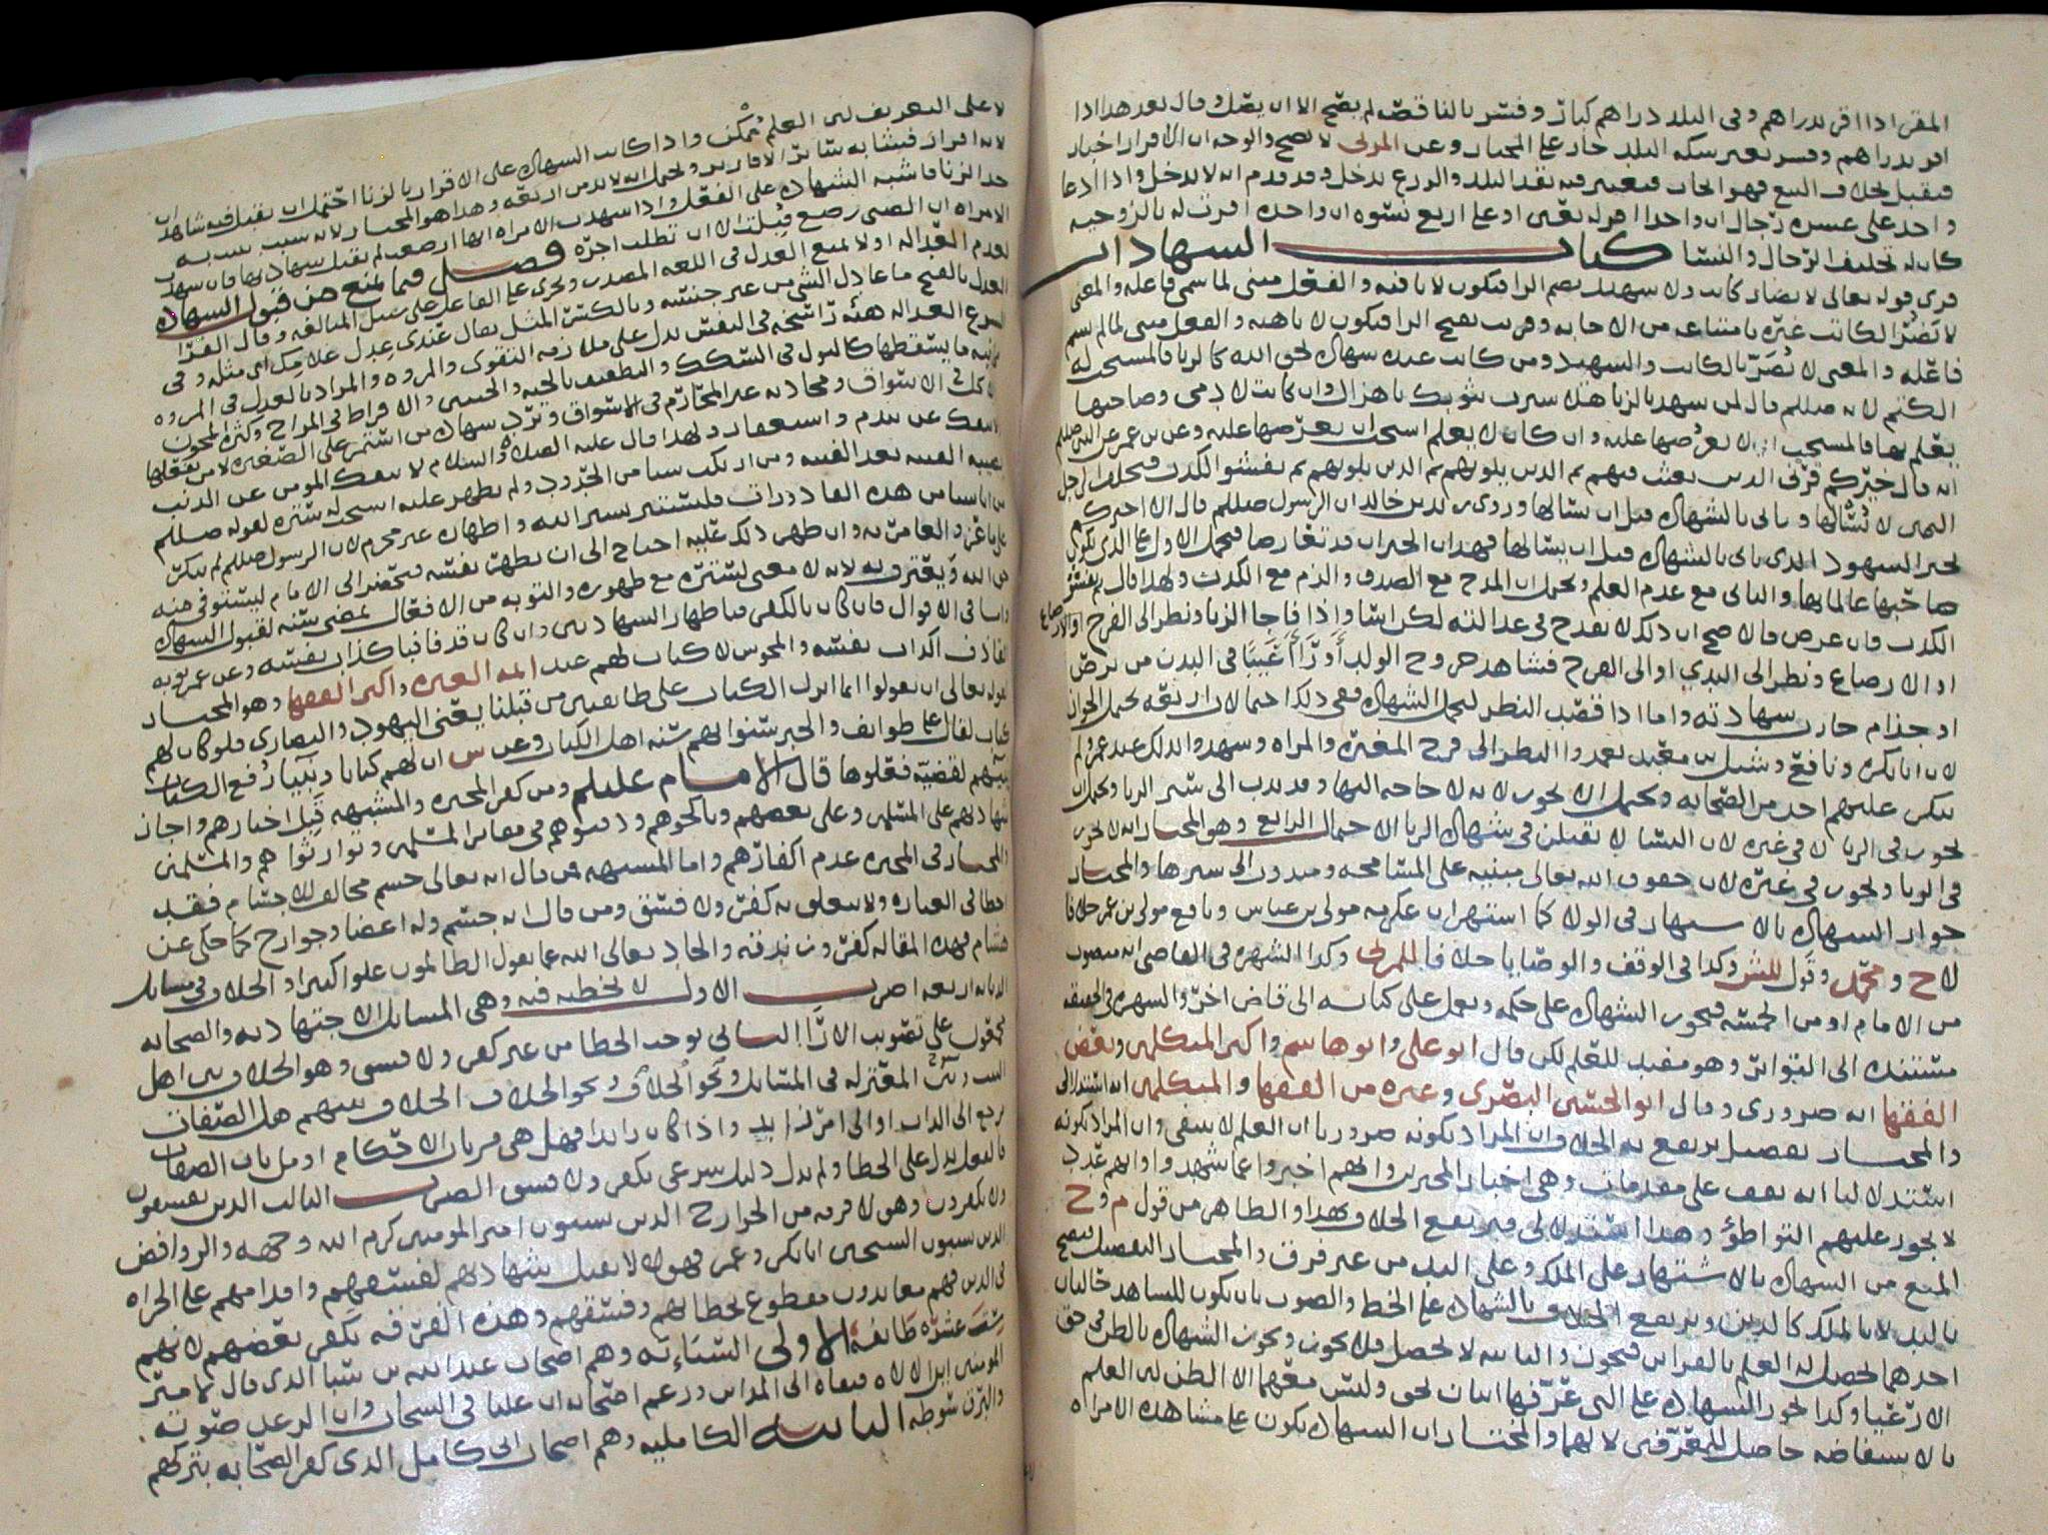 المقر اذا اقر بدراهم وفي البلد دراهم كبار وفسر بالناقص لم يصح الا ان يصل وقال بعد هذا اذا
اقر بدراهم وفسر بغير سكة البلد جاز على المختار وعن المزني لا يصح والوجه ان الاقرار اخبار
فيقبل بخلاف البيع فهو ايجاب فيعتبر فيه نقد البلد وقد تقدم انه لا يدخل واذا ادعا
واحد على عشرة رجال ان واحدا قوله يعني او على اربع نسوة ان واحدة اقرت له بالزوجية
كان له تحليف الرجال والنسا كتاب الشهادات
قرى قوله تعالى لا يضار كاتب ولا شهيد بضم الرا فيكون لا نافية والفعل مبني لما سمي فاعله والمعنى
لا يضر الكاتب غيره بامتناعه من الاجابة وقريت بفتح الرا فيكون لا ناهية والفعل مبني لما لم يسم
فاعله والمعنى لا يضر بالكاتب والشهيد ومن كانت عنده شهادة لحق الله كالزنا فالمستحب له
الكتم لانه صللم قال لمن شهد بالزنا هلا سترت بثوبك يا هزال وان كانت لادمي وصاحبها
يعلم بها فالمستحب ان لا يعرضها عليه وان كان لا يعلم استحب ان يعرضها عليه وعن بن عمر عن النبي صللم
انه قال خيركم قرني الذين بعثت فيهم ثم الذين يلونهم ثم الذين يلونهم ثم يفشوا الكذب فيحلف الرجل
اليمين لا يسالها وياتي بالشهادة قبل ان يسالها وروى زيد بن خالد ان الرسول صللم قال الا اخبركم
بخير الشهود الذي ياتي بالشهادة قبل ان يسالها فهذان الخبران قد تعارضا فيحمل الاول على الذي يكون
صاحبها عالما بها والثاني مع عدم العلم ويحتمل ان المدح مع الصدق والذم مع الكذب ولهذا قال ثم يفشو
الكذب فان عرض فالاصح ان ذلك لا يقدح في عدالته لكن اسا واذا فاجا الزنا ونظر الى الفرج
او الارضاع ونظر الى الثدي او الى الفرج فشاهد خروج الولد او راا عيبا في البدن من برص
او جذام جازت شهادته واما اذا قصد النظر لتحمل الشهادة ففي ذلك احتمالات اربعة يحتمل الجواز
لان ابا بكرة ونافع وشبل بن معبد تعمدوا النظر الى فرج المغيرة والمراه وشهدوا بذلك عند عمر ولم
ينكر عليهم احد من الصحابة ويحتمل ان لا يجوز لانه لا حاجة اليها وقد ندب الى ستر الزنا ويحتمل ان
يجوز في الزنا لا في غيره لان النسا لا يقبلن في شهادة الزنا الاحتمال الرابع وهو المختار انه لا يجوز
في الزنا ويجوز في غيره لان حقوق الله تعالى مبنية على المسامحة ومندوب الى سترها والمختار
جواز الشهادة بالاشتهار في الولا كما اشتهر ان عكرمة مولى بن عباس ونافع مولى بن عمر خلافا
لاح ومحمد وقول للش وكذا في الوقف والوصايا خلافا للمزني وكذا الشهرة في القاضي انه منصوب
من الامام او من الخمسة فيجوز الشهادة على حكمه ويعمل على كتابه الى قاض اخر والشهرة في الحقيقة
مستندة الى التواتر وهو مفيد للعلم لكن قال ابو علي وابو هاشم واكثر المتكلمين وبعض
الفقها انه ضروري وقال ابو الحسين البصري وغيره من الفقها والمتكلمين انه استدلالي
والمختار تفصيل يرتفع به الخلاف ان المراد بكونه ضروريا ان العلم لا ينتفي وان المراد بكونه
استدلاليا انه يقف على مقدمات وهي اخبار المخبرين وانهم اخبروا عما شهدوا وانهم عدد
لا يجوز عليهم التواطؤ وهذا استدلالي فيرتفع الخلاف بهذا والظاهر من قول م وح
المنع من الشهادة بالاشتهار على الملك وعلى اليد من غير فرق والمختار التفصيل فيصح
باليد لا بالملك كالدين ويرتفع الخلاف بالشهادة على الخط والصوت بان يكون للشاهد حالتان
احدهما يحصل له العلم بالقراين فيجوز والثانية لا يحصل فلا يجوز وتجوز الشهادة بالظن في حق
الارعيا وكذا تجوز الشهادة على التي عرفها اثنان بحق وليس معهما الا الظن لان العلم
بالاستفاضة حاصل للمعرفين لا لهما والمختار ان الشهادة تكون على مشاهدة الامراة
لا على التعريف لان العلم ممكن واذا كانت الشهادة على الاقرار بالزنا احتمل ان يقبل فيه شاهدان
لانه اقرار فيشابه سائر الاقارير ويحتمل انه لا بد من اربعة وهذا هو المختار لانه سبب يثبت به
حد الزنا فاشبه الشهادة على الفعل واذا شهدت الامراة انها ارضعت لم تقبل شهادتها فان شهدت
الامراة ان الصبي رضع قبلت الا ان تطلب اجرة فصل فيما يمنع من قبول الشهادة
لعدم العدالة او لا تمنع العدل في اللغة المصدر ويجري على الفاعل على سبيل المبالغة وقال الفرا
العدل بالفتح ما عادل الشي من غير جنسه وبالكسر المثل يقال عندي عدل غلامك اي مثله وفي
الشرع العدالة هيئة راسخة في النفس تدل على ملازمة التقوى والمروة والمراد بالعدل في المروة
مجانبة ما يسقطها كالبول في السكك والافراط في المزاح وكثرة المجون
والاكل في الاسواق ومحادثة غير المحارم في الاسواق وترد شهادة من استمر على الصغيرة لا من يفعلها
وينفك عن ندم واستغفار ولهذا قال عليه الصلاة والسلام لا ينفك المومن عن الذنب
يصيبه الفينة بعد الفينة ومن ارتكب شيا من الحدود ولم يظهر عليه استحب له ستره لقوله صللم
من اتا شيا من هذه القاذورات فليستتر بستر الله واظهاره غير محرم لان الرسول صللم لم ينكر
على ماعز والغامدية وان ظهر ذلك عليه احتاج الى ان يطهر نفسه فيحضر الى الامام ليستوفي منه
حق الله ويعترف به لانه لا معنى لستره مع ظهوره والتوبة من الافعال لمضي سنة لقبول الشهادة
واما في الاقوال فان كان بالكفر فباظهار الشهادتين وان كان قذفا فباكذاب نفسه وعن عمر توبة
القاذف اكذاب نفسه والمجوس لا كتاب لهم عند ائمة العترة واكثر الفقها وهو المختار
لقوله تعالى ان تقولوا انما انزل الكتاب على طائفتين من قبلنا يعني اليهود والنصارى فلو كان لهم
كتاب لقال على طوايف والخبر سنوا بهم سنة اهل الكتاب وعن س ان لهم كتابا ونبيا رفع الكتاب
بينهم لقضية فعلوها قال الامام عليلم ومن كفر المجبرة والمشبهة قبل اخبارهم واجاز
شهادتهم على المسلمين وعلى بعضهم وناكحوهم ودفنوهم في مقابر المسلمين وتوارثوا هم والمسلمين
والمختار في المجبرة عدم اكفارهم واما المشبهة فمن قال انه تعالى جسم مخالف للاجسام فقد
اخطا في العبارة ولا يتعلق به كفر ولا فسق ومن قال انه جسم وله اعضا وجوارح كما حكي عن
هشام فهذه المقالة كفر وزندقة والحاد تعالى الله عما يقول الظالمون علوا كبيرا والخلاف في مسائل
الديانة اربعة اضرب الاول لا تخطية فيه وهي المسائل الاجتهادية والصحابة
متفقون على تصويب الارا الثاني يوجد الخطا من غير كفر ولا فسق وهو الخلاف بين اهل
البيت وبين المعتزلة في المسائل ونحو الخلاف بينهم هل الصفات
ترجع الى الذات او الى امر زايد واذا كان زايدا فهل هي من باب الاحكام او من باب الصفات
فالعقل يدل على الخطا ولم يدل دليل شرعي بكفر ولا فسق الضرب الثالث الذين يفسقون
ولا يكفرون وهولا فرقة من الخوارج الذين يسبون امير المومنين كرم الله وجهه والروافض
الذين يسبون الشيخين ابا بكر وعمر فهولا لا تقبل شهادتهم لفسقهم واقدامهم على الجراة
في الدين فهم معاندون مقطوع بخطائهم وفسقهم وهذه الفرقة يكفر بعضهم لانهم
ستة عشرة طائفة الاولى السبائية وهم اصحاب عبدالله بن سبا الذي قال لامير
المومنين انت الاله فنفاه الى المداين وزعم اصحابه ان عليا في السحاب وان الرعد صوته
والبرق سوطه الثانية الكاملية وهم اصحاب ابي كامل الذي كفر الصحابة بتركهم